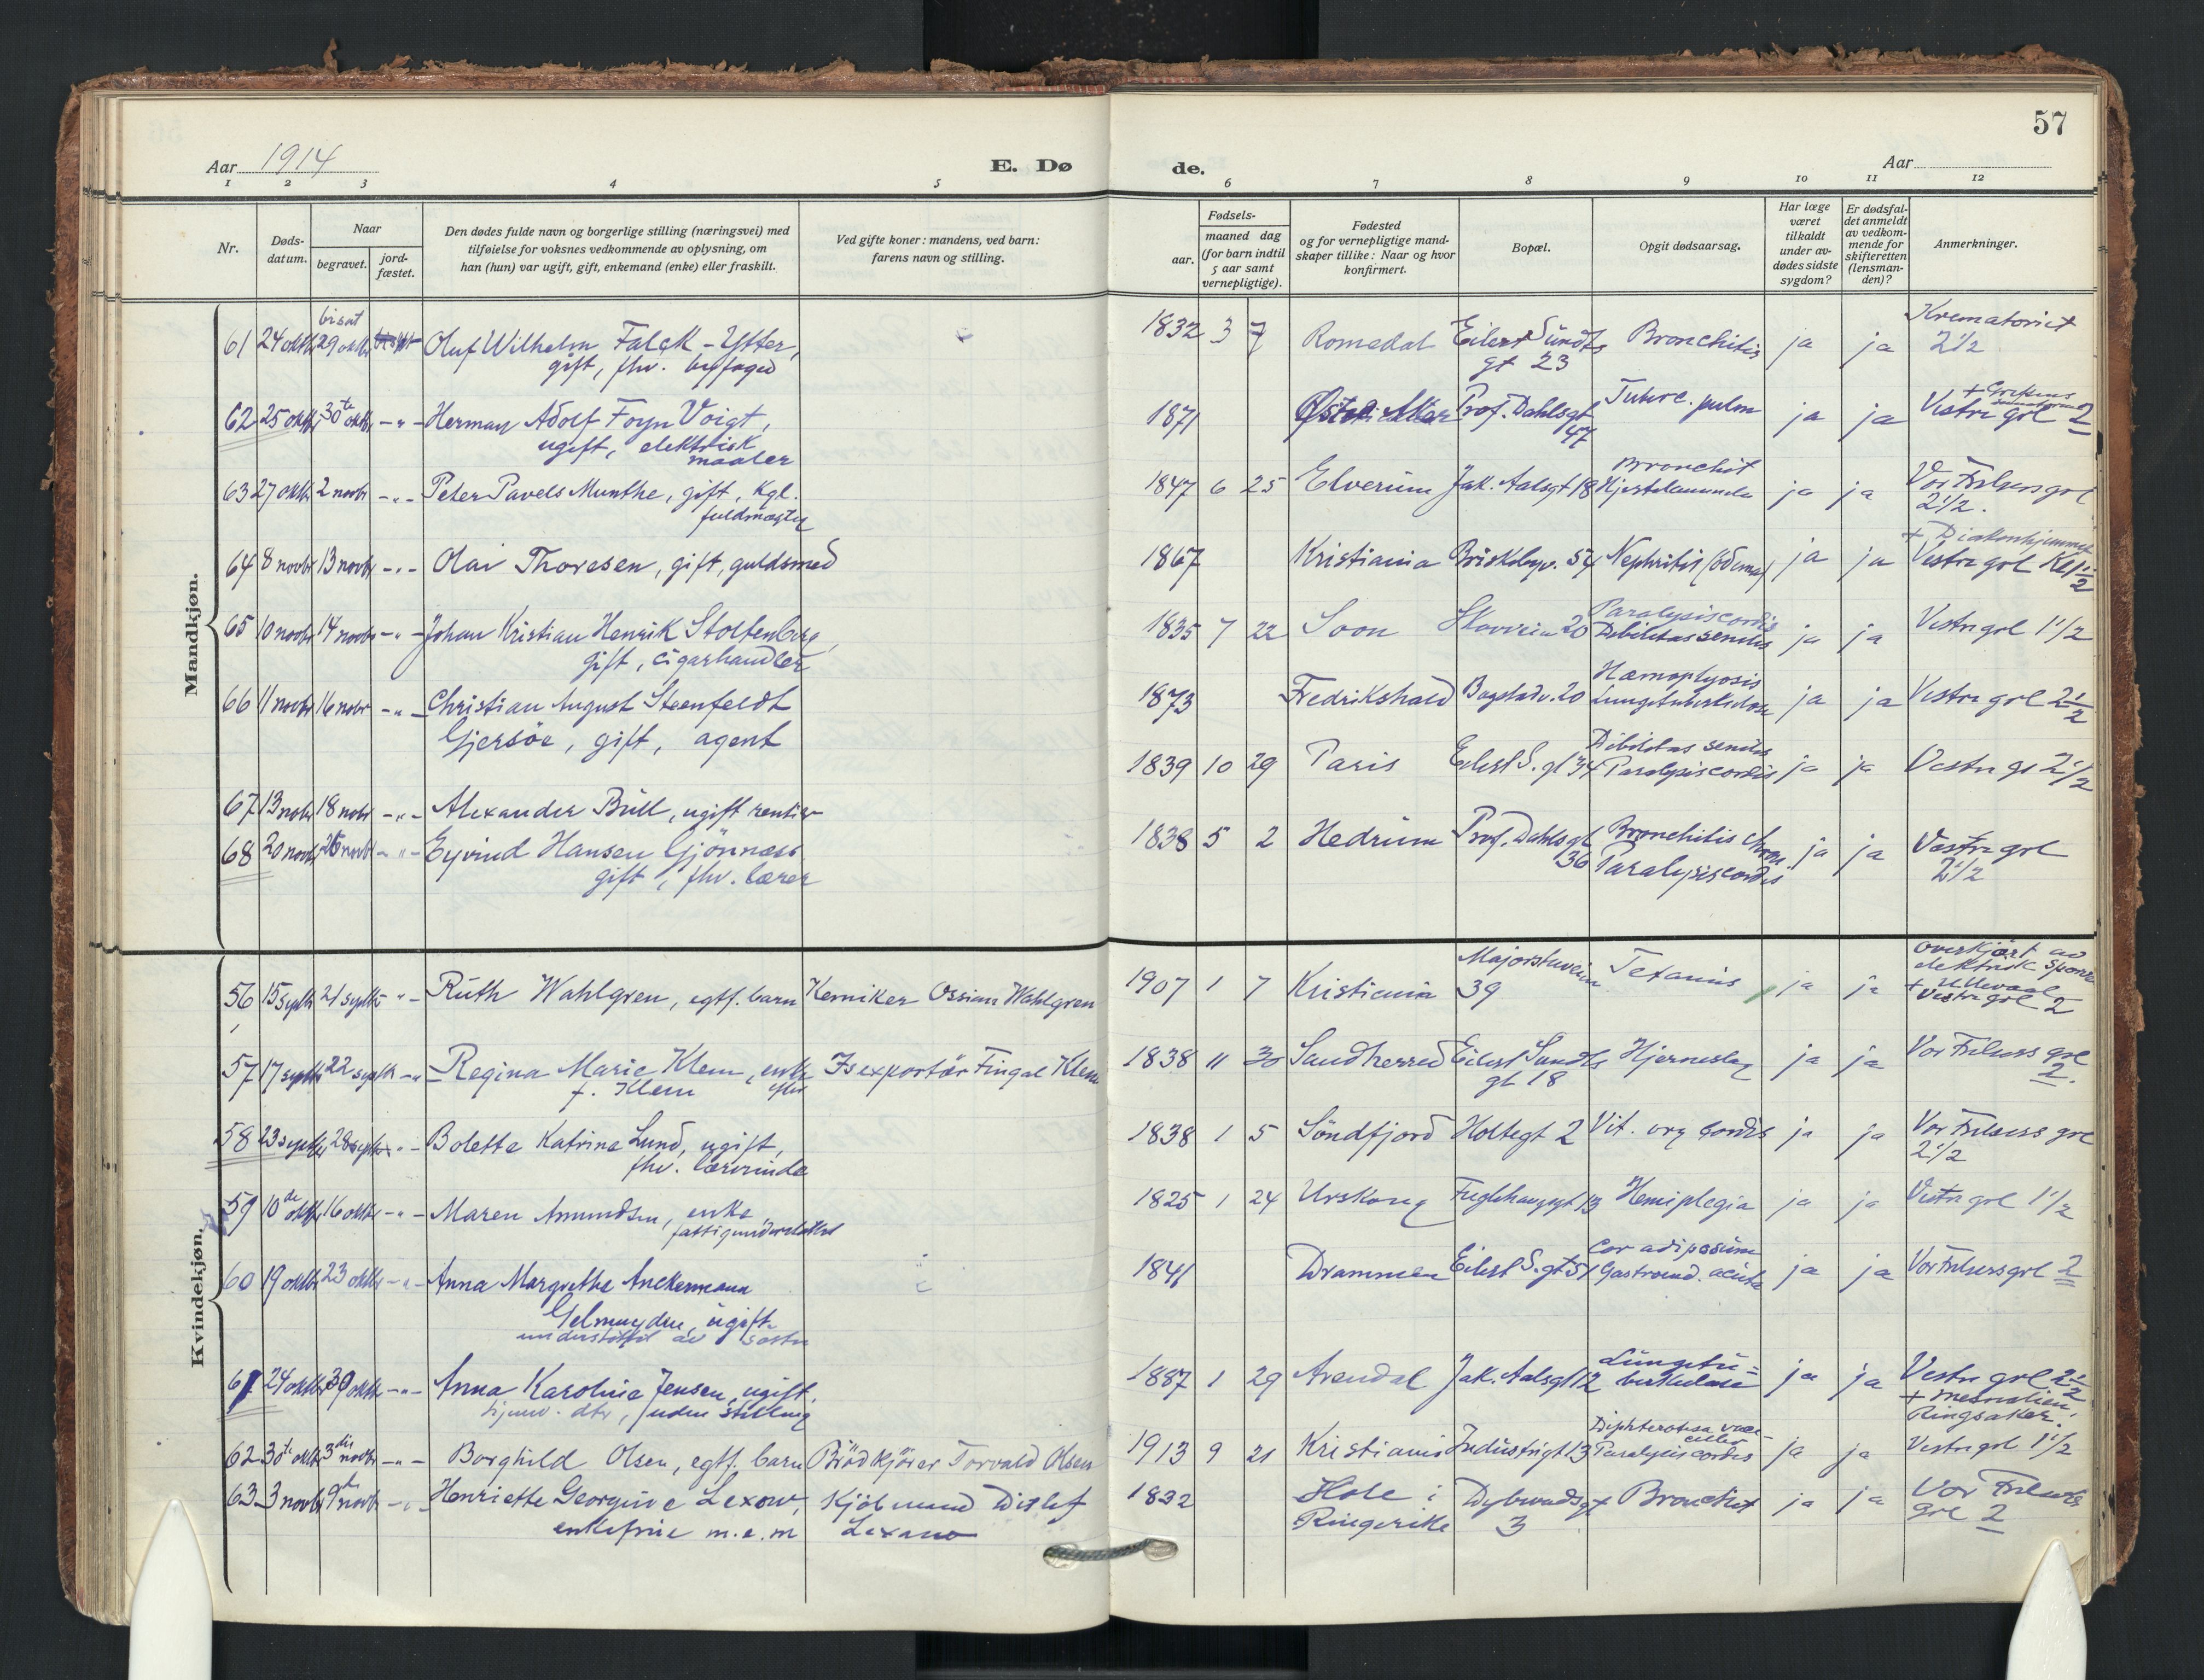 57
Aar 1914
E. Dø
de.
Aar
1 2 3 4 5 6 7 8 9 10 11 12
Nr.
Døds-
datum.
Naar
begravet.
jord-
fæstet.
Den dødes fulde navn og borgerlige stilling (næringsvei) med
tilføielse for voksnes vedkommende av oplysning, om
han (hun) var ugift, gift, enkemand (enke) eller fraskilt.
Ved gifte koner: mandens, ved barn:
farens navn og stilling.
Fødsels-
aar.
maaned dag
(for barn indtil
5 aar samt
vernepligtige).
Fødested
og for vernepligtige mand-
skaper tillike: Naar og hvor
konfirmert.
Bopæl.
Opgit dødsaarsag.
Har læge
været
tilkaldt
under av-
dødes sidste
sygdom?
Er dødsfal-
det anmeldt
av vedkom-
mende for
skifteretten
(lensman-
den)?
Anmerkninger.
Mandkjøn.
bisat
61 24 oktbr 29 oktbr Oluf Wilhelm Falck-Ytter, 1832 3 7 Romedal Eilert Sundts Bronchitis ja ja Krematoriet
gift, fhv. byfoged gt 23 2½
62 25 oktbr 30te oktbr -"- Herman Adolf Foyn Voigt, 1871 Prof. Dahlsgt Tuberc. pulm ja ja + Grefsens
ugift, elektrisk 47 Vestre grl 2
maaler
63 27 oktbr 2 novbr -"- Peter Pavels Munthe, gift, kgl. 1847 6 25 Elverum Jak. Aalsgt 18 Bronchit ja ja Vor Frelsers grl
fuldmægtig 2½.
64 8 novbr 13 novbr -"- Olai Thoresen, gift, guldsmed 1867 Kristiania Briskebyv. 54 Nephritis (ödema) ja ja + Diakonhjemmet
Vestre grl Kl 1½
65 10 novbr 14 novbr -"- Johan Kristian Henrik Stoltenberg, 1835 7 22 Soon 20 Paralysis cordis ja ja Vestre grl 1½
gift, cigarhandler Debilitas senilis
66 11 novbr 16 nobr -"- Christian August Steenfeldt 1873 Fredrikshald Bogstadv. 20 Hæmoptyosis ja ja Vestre grl 2½
Gjersöe, gift, agent Lungetuberkulose
67 13 nobr 18 nobr -"- Alexander Bull, ugift rentier 1839 10 29 Paris Eilert S. gt 34 Debilitas senilis ja ja Vestre gr 2½
Paralysis cordis
68 20 novbr 26 novbr -"- Eyvind Hansen Gjönnæss 1838 5 2 Hedrum Prof. Dahlsgt Bronchitis chron. ja ja Vestre grl
gift, fhv. lærer 36 Paralysis cordis 2½
Kvindekjøn.
56 15 septbr 21 septbr -"- Ruth Wahlgren, egtf. barn Kemiker Ossian Wahlgren 1907 1 7 Kristiania Majorstuveien Tetanus ja ja Overkjørt av
39 elektrisk sporv
+ Ullevaal
Vestre grl 2
57 17 septbr 22 septbr -"- Regina Marie Klem, enke Isexportör Fingal Klem 1838 11 30 Sandherred Eilert Sundts Hjerneslag ja ja Vor Frelsers grl
f. Klem efter gt 18 2.
58 23 septbr 28 septbr -"- Bolette Katrine Lund, ugift, 1838 1 5 Söndfjord Holtegt 2 Vit. org cordis ja ja Vor Frelsers grl
fhv. lærerinde 2½
59 10de oktbr 16 oktbr -"- Maren Amundsen, enke 1825 1 24 Urskoug Fuglehaugsgt 13 Hemiplegia ja ja Vestre grl 1½
fattigunderstöttet
60 19 oktbr 23 oktbr -"- Anna Margrethe Anckermann 1841 Drammen Eilert S. gt 51 Cor adiposum ja ja Vor Frelsers grl 2
Gelmuyden, ugift Gastroend. acuta
understöttet av søster
61 24 oktbr 30 oktbr -"- Anna Karoline Jensen, ugift, 1887 1 29 Arendal Jak. Aalsgt 12 Lungetu- ja ja Vestre grl 2½
hjemv. dtr, uden stilling berkulose + Mesnalien,
Ringsaker.
62 30te oktbr 3die novbr -"- Borghild Olsen, egtf. barn Brödkjörer Torvald Olsen 1913 9 21 Kristiania Industrigt 13 Paralysis cordis ja ja Vestre grl 1½
63 3 novbr 9de novbr -"- Henriette Georgine Lexow, Kjöbmand Ditlef 1832 Hole i Dybwadsgt Bronchit ja ja Vor Frelsers
enkefrue m.e.m Lexow Ringerike 3 grl 2